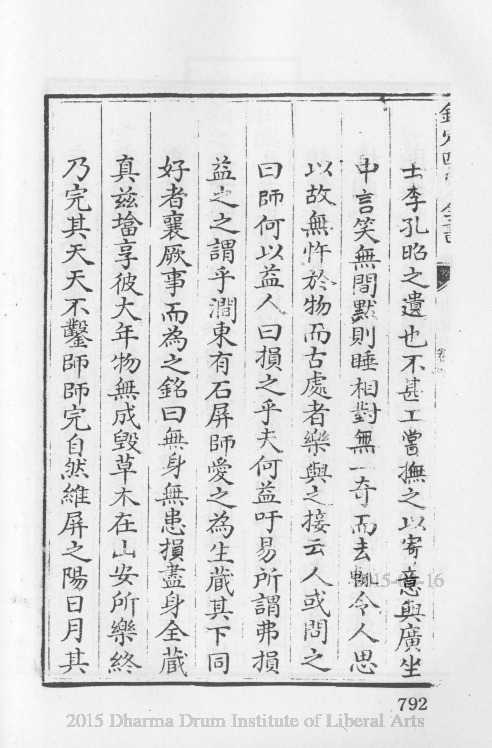 士李孔昭之遺也不甚工嘗撫之以寄意與廣坐
中言笑無間默則睡相對無一奇而去輒令人思
以故無忤於物而古處者樂與之接云人或問之
曰師何以益人曰損之乎夫何益吁易所謂弗損
益之之謂乎澗東有石屏師愛之為生藏其下同
好者襄厥事而為之銘曰無身無患損盡身全藏
真兹墖享彼大年物無成毀草木在山安所樂終
乃完其天天不鑿師師完自然維屏之陽日月其
792
2015 Dharma Drum Institute of Liberal Arts